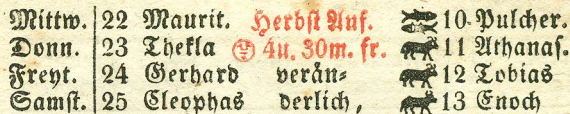 Mittw. 22 Maurit. Herbst Anf. 10 Pulcher.
Donn. 23 Thekla 4u. 30m. fr. 11 Athanas.
Freyt. 24 Gerhard verän= 12 Tobias
Samst. 25 Cleophas derlich, 13 Enoch